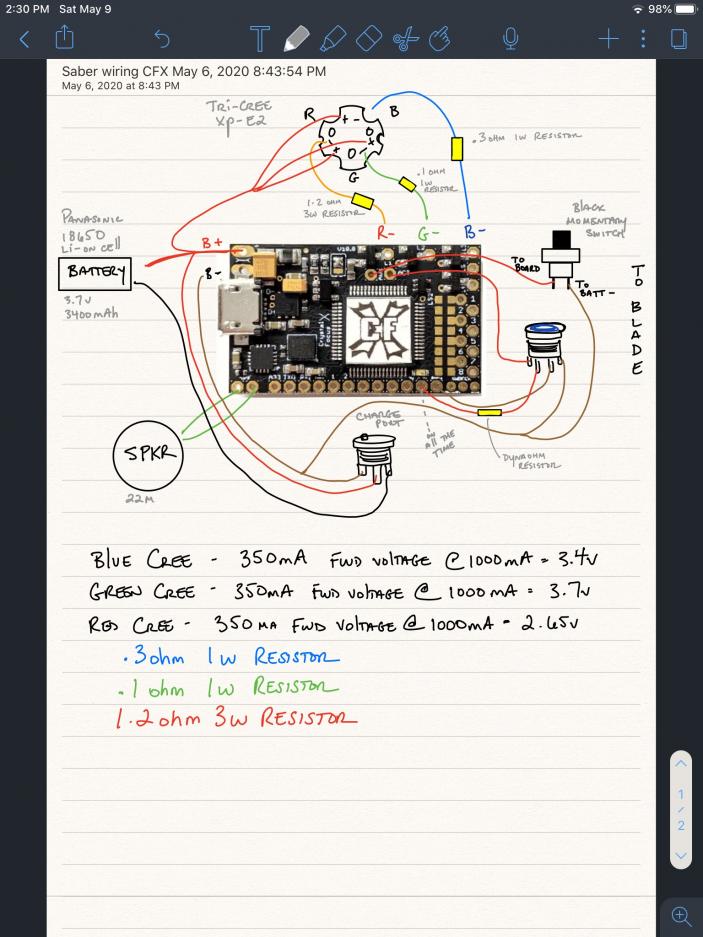 2:30 PM Sat May 9
98%
Saber wiring CFX May 6, 2020 8:43:54 PM
May 6, 2020 at 8:43 PM
TRI-CREE
XP-E2
R
B
G
.3 OHM 1W RESISTOR
.1 OHM
1W
RESISTOR
1.2 OHM
3W RESISTOR
R-
G-
B-
BLACK
MOMENTARY
SWITCH
PANASONIC
18650
LI-ON CELL
BATTERY
3.7V
3400mAh
B+
B-
TO
BOARD
TO
BATT-
TO BLADE
CF
Crystal
Focus
CHARGE
PORT
ON
All THE
TIME
DYNAOHM
RESISTOR
SPKR
22M
BLUE CREE - 350mA FWD VOLTAGE @ 1000mA = 3.4V
GREEN CREE - 350mA FWD VOLTAGE @ 1000mA = 3.7V
RED CREE - 350MA FWD VOLTAGE @ 1000mA - 2.65V
.3ohm 1W RESISTOR
.1 ohm 1W RESISTOR
1.2ohm 3W RESISTOR
1
/
2